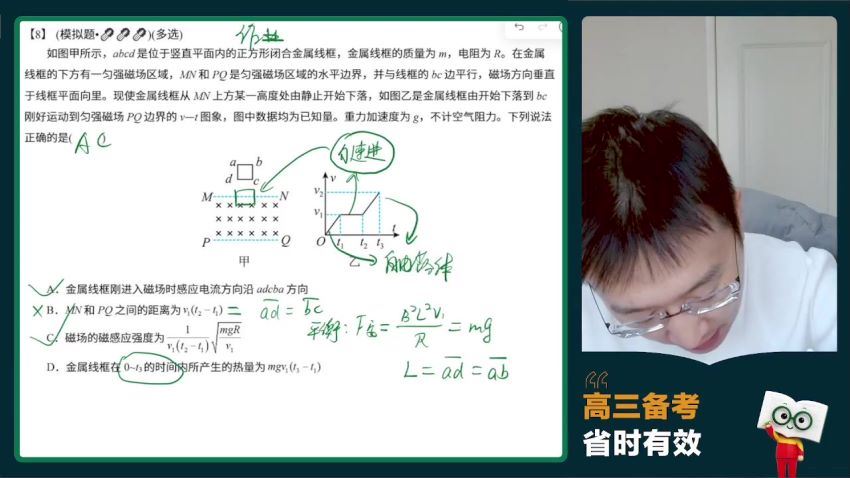 【8】 (模拟题•)(多选) 作业
如图甲所示，abcd 是位于竖直平面内的正方形闭合金属线框，金属线框的质量为 m，电阻为 R。在金属
线框的下方有一匀强磁场区域，MN 和 PQ 是匀强磁场区域的水平边界，并与线框的 bc 边平行，磁场方向垂直
于线框平面向里。现使金属线框从 MN 上方某一高度处由静止开始下落，如图乙是金属线框由开始下落到 bc
刚好运动到匀强磁场 PQ 边界的 v—t 图象，图中数据均为已知量。重力加速度为 g，不计空气阻力。下列说法
正确的是( A C
匀速进
a b
d c
M N
P Q
甲
v
v₂
v₁
O t₁ t₂ t₃ t
乙
自由落体
A．金属线框刚进入磁场时感应电流方向沿 adcba 方向
B．MN 和 PQ 之间的距离为 v₁(t₂ − t₁) = ad = bc
平衡: F安 = B²L²v₁/R = mg
C．磁场的磁感应强度为 1/(v₁(t₂ − t₁)) √(mgR/v₁)
D．金属线框在 0~t₃ 的时间内所产生的热量为 mgv₁(t₃ − t₁)
L = ad = ab
高三备考
省时有效